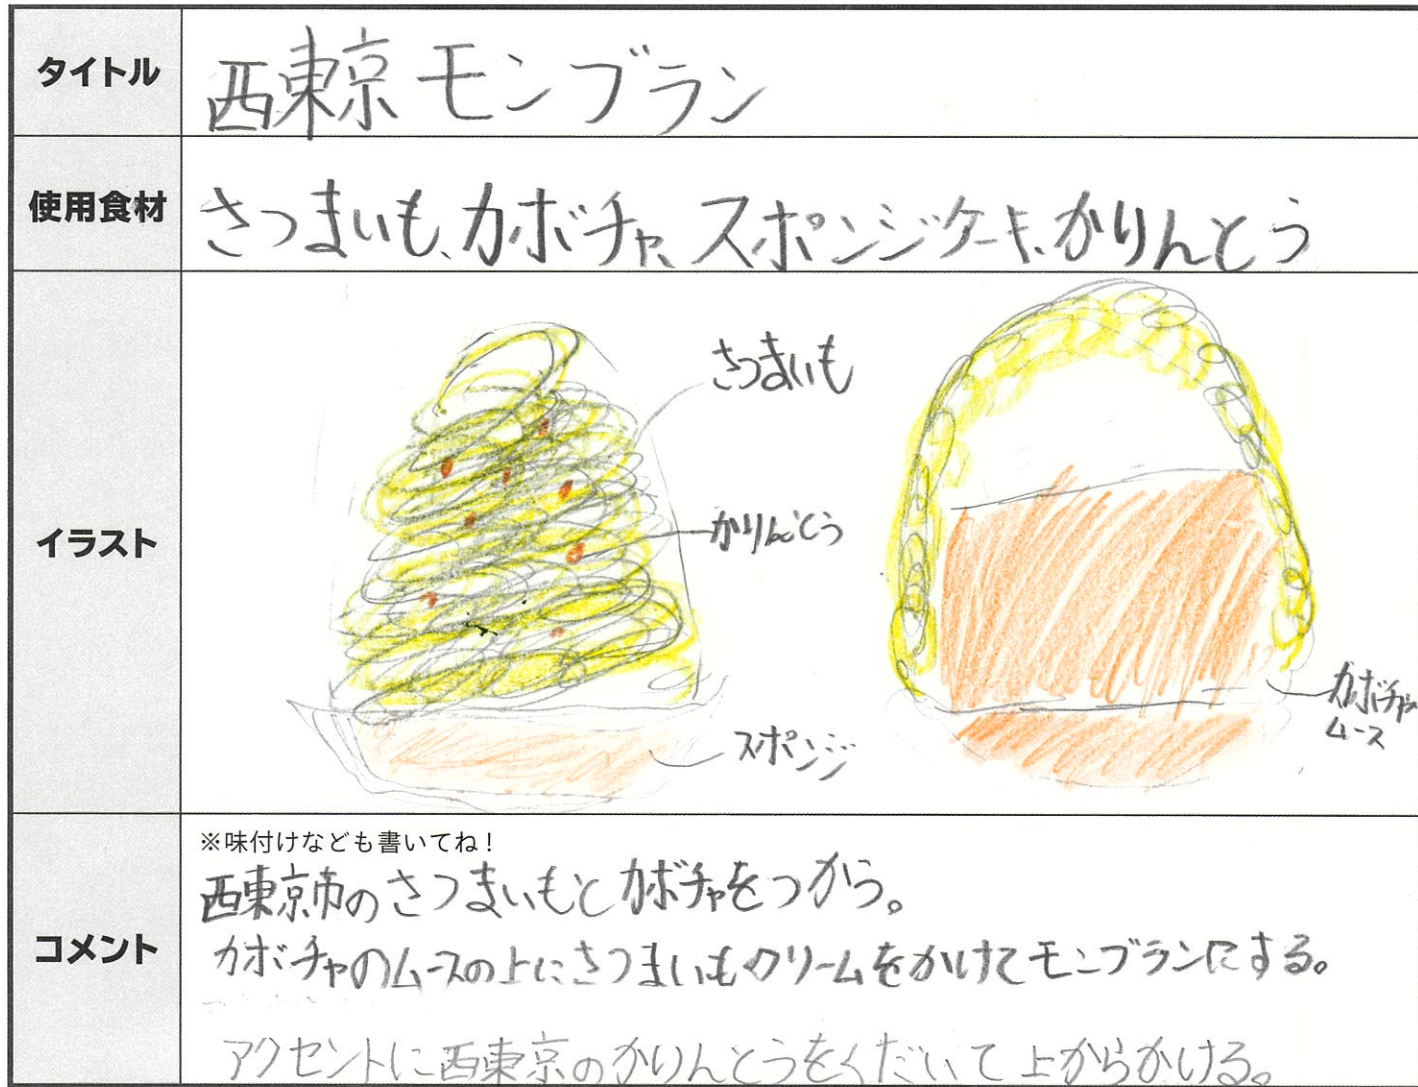 タイトル
西東京モンブラン
使用食材
さつまいも、カボチャ、スポンジケーキ、かりんとう
イラスト
さつまいも
かりんとう
スポンジ
カボチャ
ムース
コメント
※味付けなども書いてね！
西東京市のさつまいもとカボチャをつかう。
カボチャのムースの上にさつまいもクリームをかけてモンブランにする。
アクセントに西東京のかりんとうをくだいて上からかける。